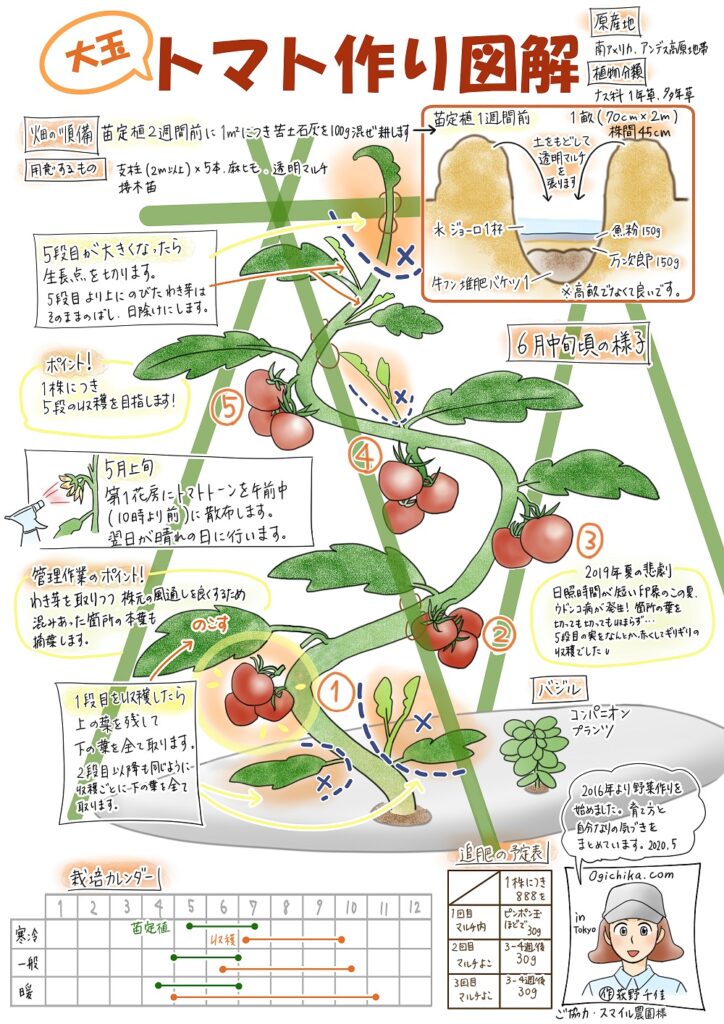 大玉
トマト作り図解
原産地
南アメリカ、アンデス高原地帯
植物分類
ナス科 1年草、多年草
畑の順備
苗定植2週間前に1㎡につき苦土石灰を100g混ぜ耕します
用意するもの
支柱(2m以上)×5本、麻ヒモ、透明マルチ
接木苗
苗定植1週間前
1畝(70cm×2m)
株間45cm
土をもどして
透明マルチ
を
張ります
水ジョーロ1杯
魚粉150g
万次郎150g
牛フン堆肥バケツ1
※高畝でなくて良いです。
5段目が大きくなったら
生長点を切ります。
5段目より上にのびたわき芽は
そのままのばし、日除けにします。
6月中旬頃の様子
ポイント!
1株につき
5段の収穫を目指します!
⑤
④
③
②
①
5月上旬
第1花房にトマトトーンを午前中
(10時より前)に散布します。
翌日が晴れの日に行います。
管理作業のポイント!
わき芽を取りつつ株元の風通しを良くするため
混みあった箇所の本葉も
摘葉します。
のこす
2019年夏の悲劇
日照時間が短い印象のこの夏、
ウドンコ病が発生!箇所の葉を
切っても切っても収まらず…
5段目の実をなんとか赤くしてギリギリの
収穫でした
1段目を収穫したら
上の葉を残して
下の葉を全て取ります。
2段目以降も同じように
収穫ごとに下の葉を全て
取ります。
バジル
コンパニオン
プランツ
2016年より野菜作りを
始めました。育て方と
自分なりの気づきを
まとめています。2020.5
栽培カレンダー
1 2 3 4 5 6 7 8 9 10 11 12
寒冷
苗定植
収穫
一般
暖
追肥の予定表
1株につき
888を
1回目
マルチ内
ピンポン玉
ほどで
30g
2回目
マルチよこ
3-4週後
30g
3回目
マルチよこ
3-4週後
30g
Ogichika.com
in
Tokyo
作 荻野千佳
ご協力・スマイル農園様